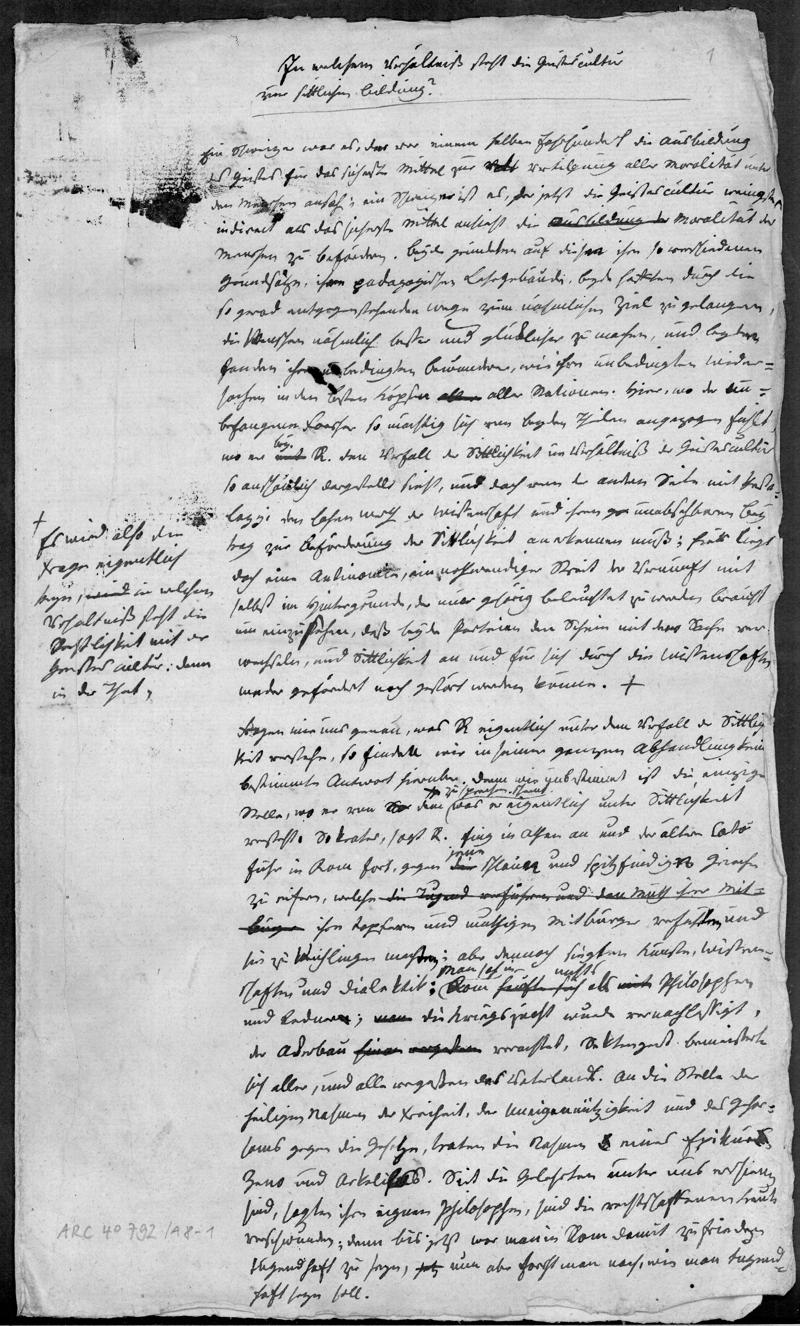 1
In welchem Verhältniß steht die Geistescultur
zur sittlichen bildung?
Ein Schweizer war es, der vor einem halben Jahrhundert die Ausbildung
des Geistes für das sicherste Mittel zur Vertilgung aller Moralität unter
den Menschen ansah; ein Schweizer ist es, der jetzt die Geistescultur wenigstens
indirect als das sicherste Mittel ansieht die Ausbildung der Moralität der
Menschen zu befördern. Beyde gründeten auf diesen ihren so verschiedenen
Grundsätzen, ihre pädagogischen Lehrgebäude, beyde hofften durch die
so gerad entgegenstehenden Wege zum nähmlichen Ziel zu gelangen,
die Menschen nähmlich besser und glücklicher zu machen, und beyde
fanden ihre unbedingten bewunderer, wie ihre unbedingten Wieder=
sacher in den besten Köpfen aller Nationen. Hier, wo der un=
befangene Forscher so mächtig sich von beyden Theilen angezogen fühlt,
wo er bey R. den Verfall der Sittlichkeit im Verhältniß der Geistescultur
so anschaulich dargestellt sieht, und doch von der andern Seite mit Pesta=
lozzi den hohen werth der Wissenschaft und ihren unabsehbaren Bey
trag zur Beförderung der Sittlichkeit anerkennen muß; hier liegt
doch eine Antinomie, ein nothwendiger Streit der Vernunft mit
selbst im Hintergrunde, der nur gehörig beleuchtet zu werden braucht
um einzusehen, daß beyde Parteien den Schein mit der Sache ver
wechseln, und Sittlichkeit an und für sich durch die Wissenschaften
weder gefördert noch gestört werden könne. +
+
Es wird also die
Frage eigentlich
seyn, in welchem
Verhältniß steht die
Rechtlichkeit mit der
Geistescultur; denn
in der That,
Fragen wir uns genau, was R eigentlich unter dem Verfall der Sittlich
keit verstehe, so finden wir in seiner ganzen Abhandlung keine
bestimmte Antwort hierüber. Denn wie unbestimmt ist die einzige
zu sprechen scheint
Stelle, wo er von dem was er eigentlich unter Sittlichkeit
versteht. Sokrates, sagt R. fing in Athen an und der ältere Cato
fuhr in Rom fort, gegen jene schlauen und spitzfindigen Griechen
zu eifern, welche die Tugend verführen und den Muth ihrer Mit=
bürger ihre tapfern und muthigen Mitbürger verführten und
sie zu Weichlingen machten; aber dennoch siegten Künste, Wissen=
schaften und Dialektik; man sah in Rom nichts als Philosophen
und Redner; die Kriegszucht wurde vernachlässigt,
der Ackerbau verachtet, Sektengeist bemeisterte
sich aller, und alle vergaßen das Vaterland. An die Stelle der
heiligen Nahmen der Freiheit, der Uneigennützigkeit und des Gehor=
sams gegen die Gesetze, traten die Nahmen eines Epikurs
Zeno und Arkesilas. Seit die Gelehrten unter uns erschienen
sind, sagten ihre eignen Philosophen, sind die rechtschaffenen Leute
verschwunden; denn bis jetzt war man in Rom damit zufrieden
tugendhaft zu seyn, nun aber forscht man nach, wie man tugend=
haft seyn soll.
ARC 4° 792/A8-1